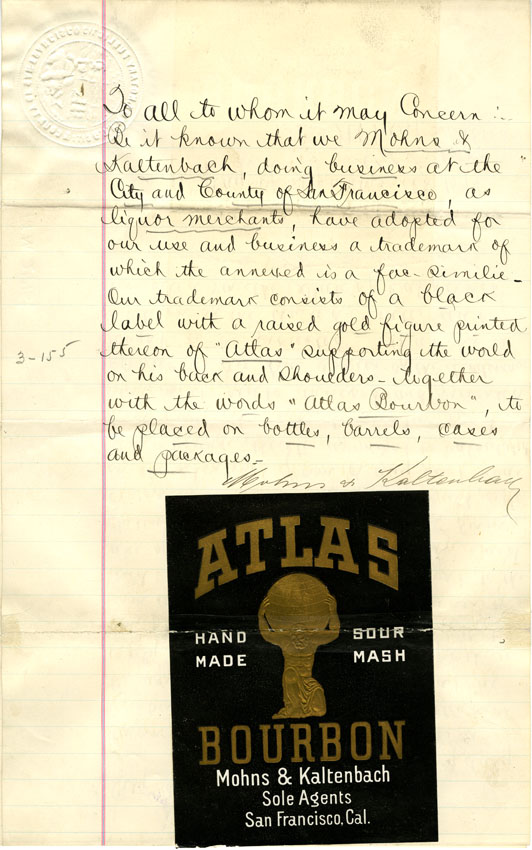 To all to whom it may Concern :-
Be it known that we Mohns &
Kaltenbach, doing business at the
City and County of San Francisco, as
liquor merchants, have adopted for
our use and business a trademark of
which the annexed is a fac-similie-
Our trademark consists of a black
label with a raised gold figure printed
3-155 thereon of "Atlas" supporting the world
on his back and shoulders- together
with the words "Atlas Bourbon", to
be placed on bottles, barrels, cases
and packages.-
Mohns & Kaltenbach
ATLAS
HAND SOUR
MADE MASH
BOURBON
Mohns & Kaltenbach
Sole Agents
San Francisco, Cal.